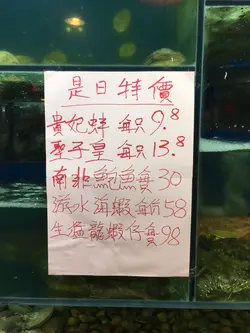 是日特價
貴妃蚌 每只9.8
聖子皇 每只13.8
南非鮑魚隻30
游水海蝦每斤58
生猛龍蝦仔隻98